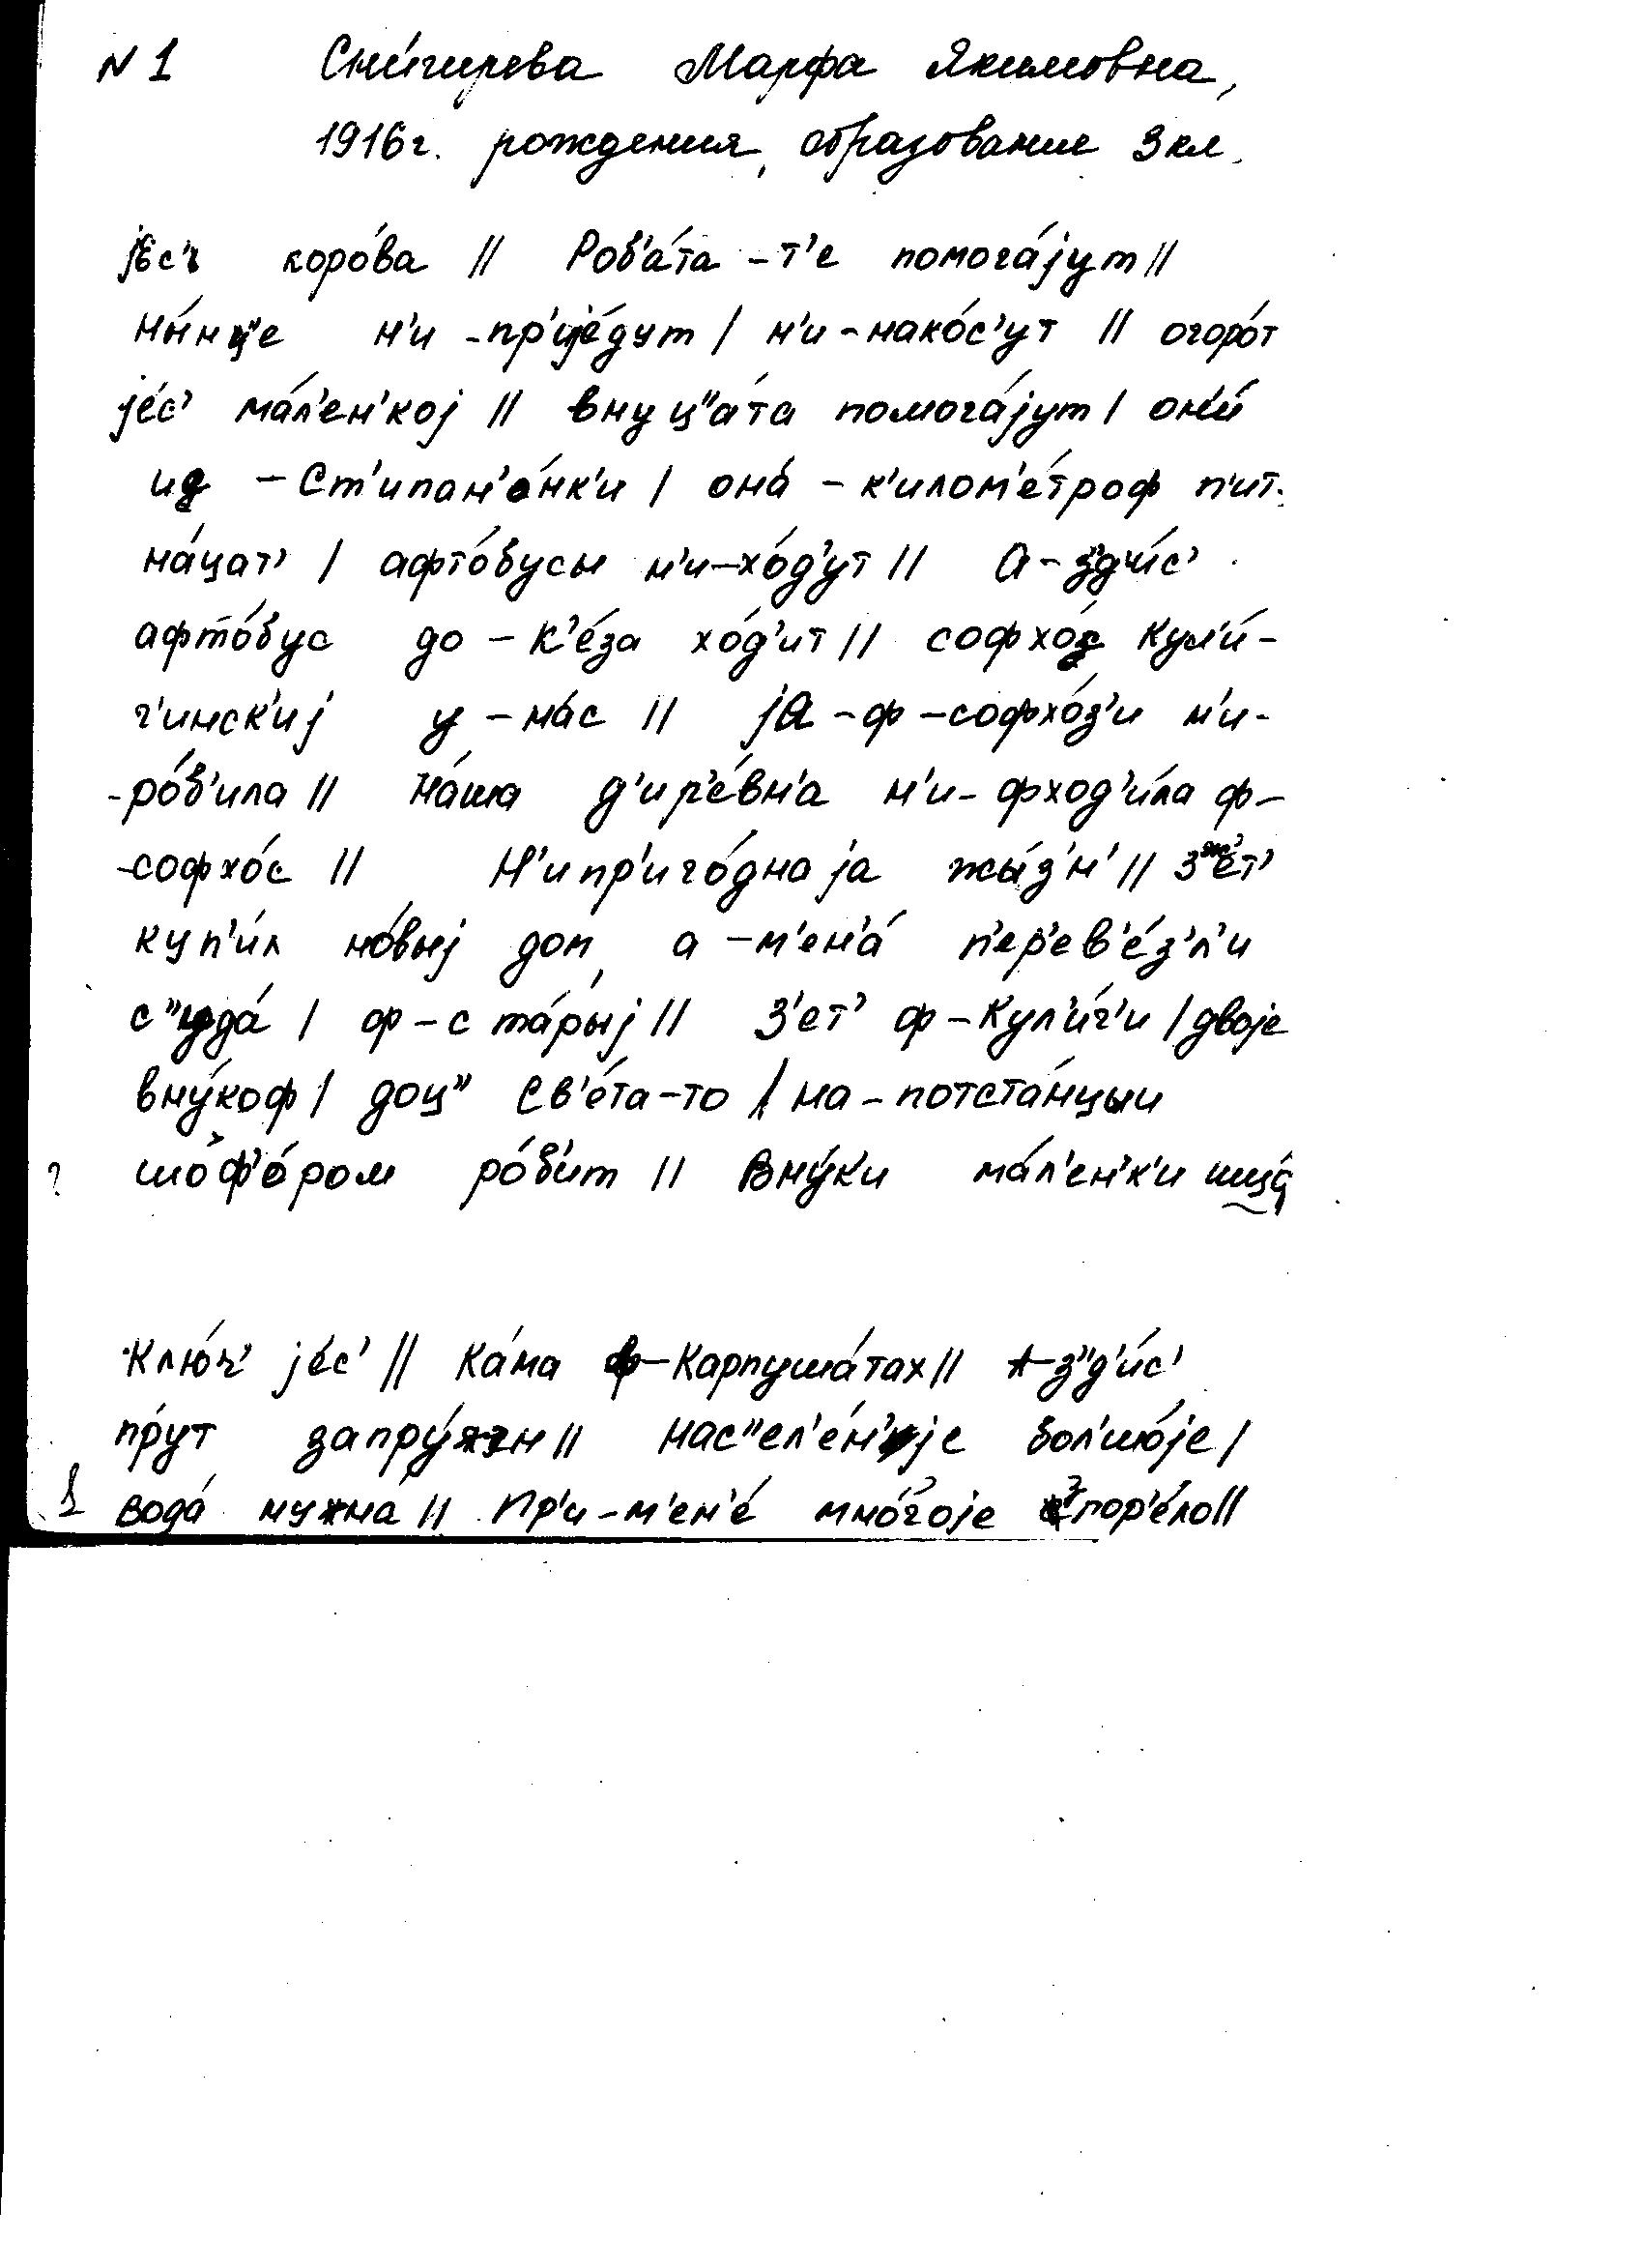 N 1 Сни́гирева Марфа Якимовна,
1916 г. рождения, образование 3 кл.
коро́ва // Роб'а́та – т'е помога́јут //
ны́нц"е н'и – пр'ије́дут / н'и – нако́с'ут // огоро́т
је́с' ма́л'ен'кој // внуц"а́та помога́јут / он'и́
– Ст'ипан'о́нк'и / она́ – к'илом'е́троф п'ит-
на́цат' / афто́бусы н'и – хо́д'ут // А –
афто́бус до – К'е́за хо́д'ит // софхо́з Кул'и́-
г'инск'иј у – на́с // јА – ф – софхо́з'и н'и-
-ро́б'ила // На́ша д'ир'е́вн'а н'и – фход'и́ла ф –
-софхо́с // Н'ипр'иго́днаја жы́з'н' //
куп'и́л но́выј дом, а – м'ен'а́ п'ер'ев'е́з'л'и
/ ф – ста́рыј // З'ет' ф – Кул'и́г'и / двоје
вну́коф / доц" Св'е́та – то / на – потста́нцыи
? шоф'о́ром ро́б'ит // Вну́к'и ма́л'ен'к'и
Клю́ч' је́с' // Ка́ма ф – Карпуша́тах // А – з"д'и́с'
пру́т // нас"ел'е́н'ије бол'шо́је /
вода́ нужна́ // Пр'и – м'ен'е́ мно́гоје